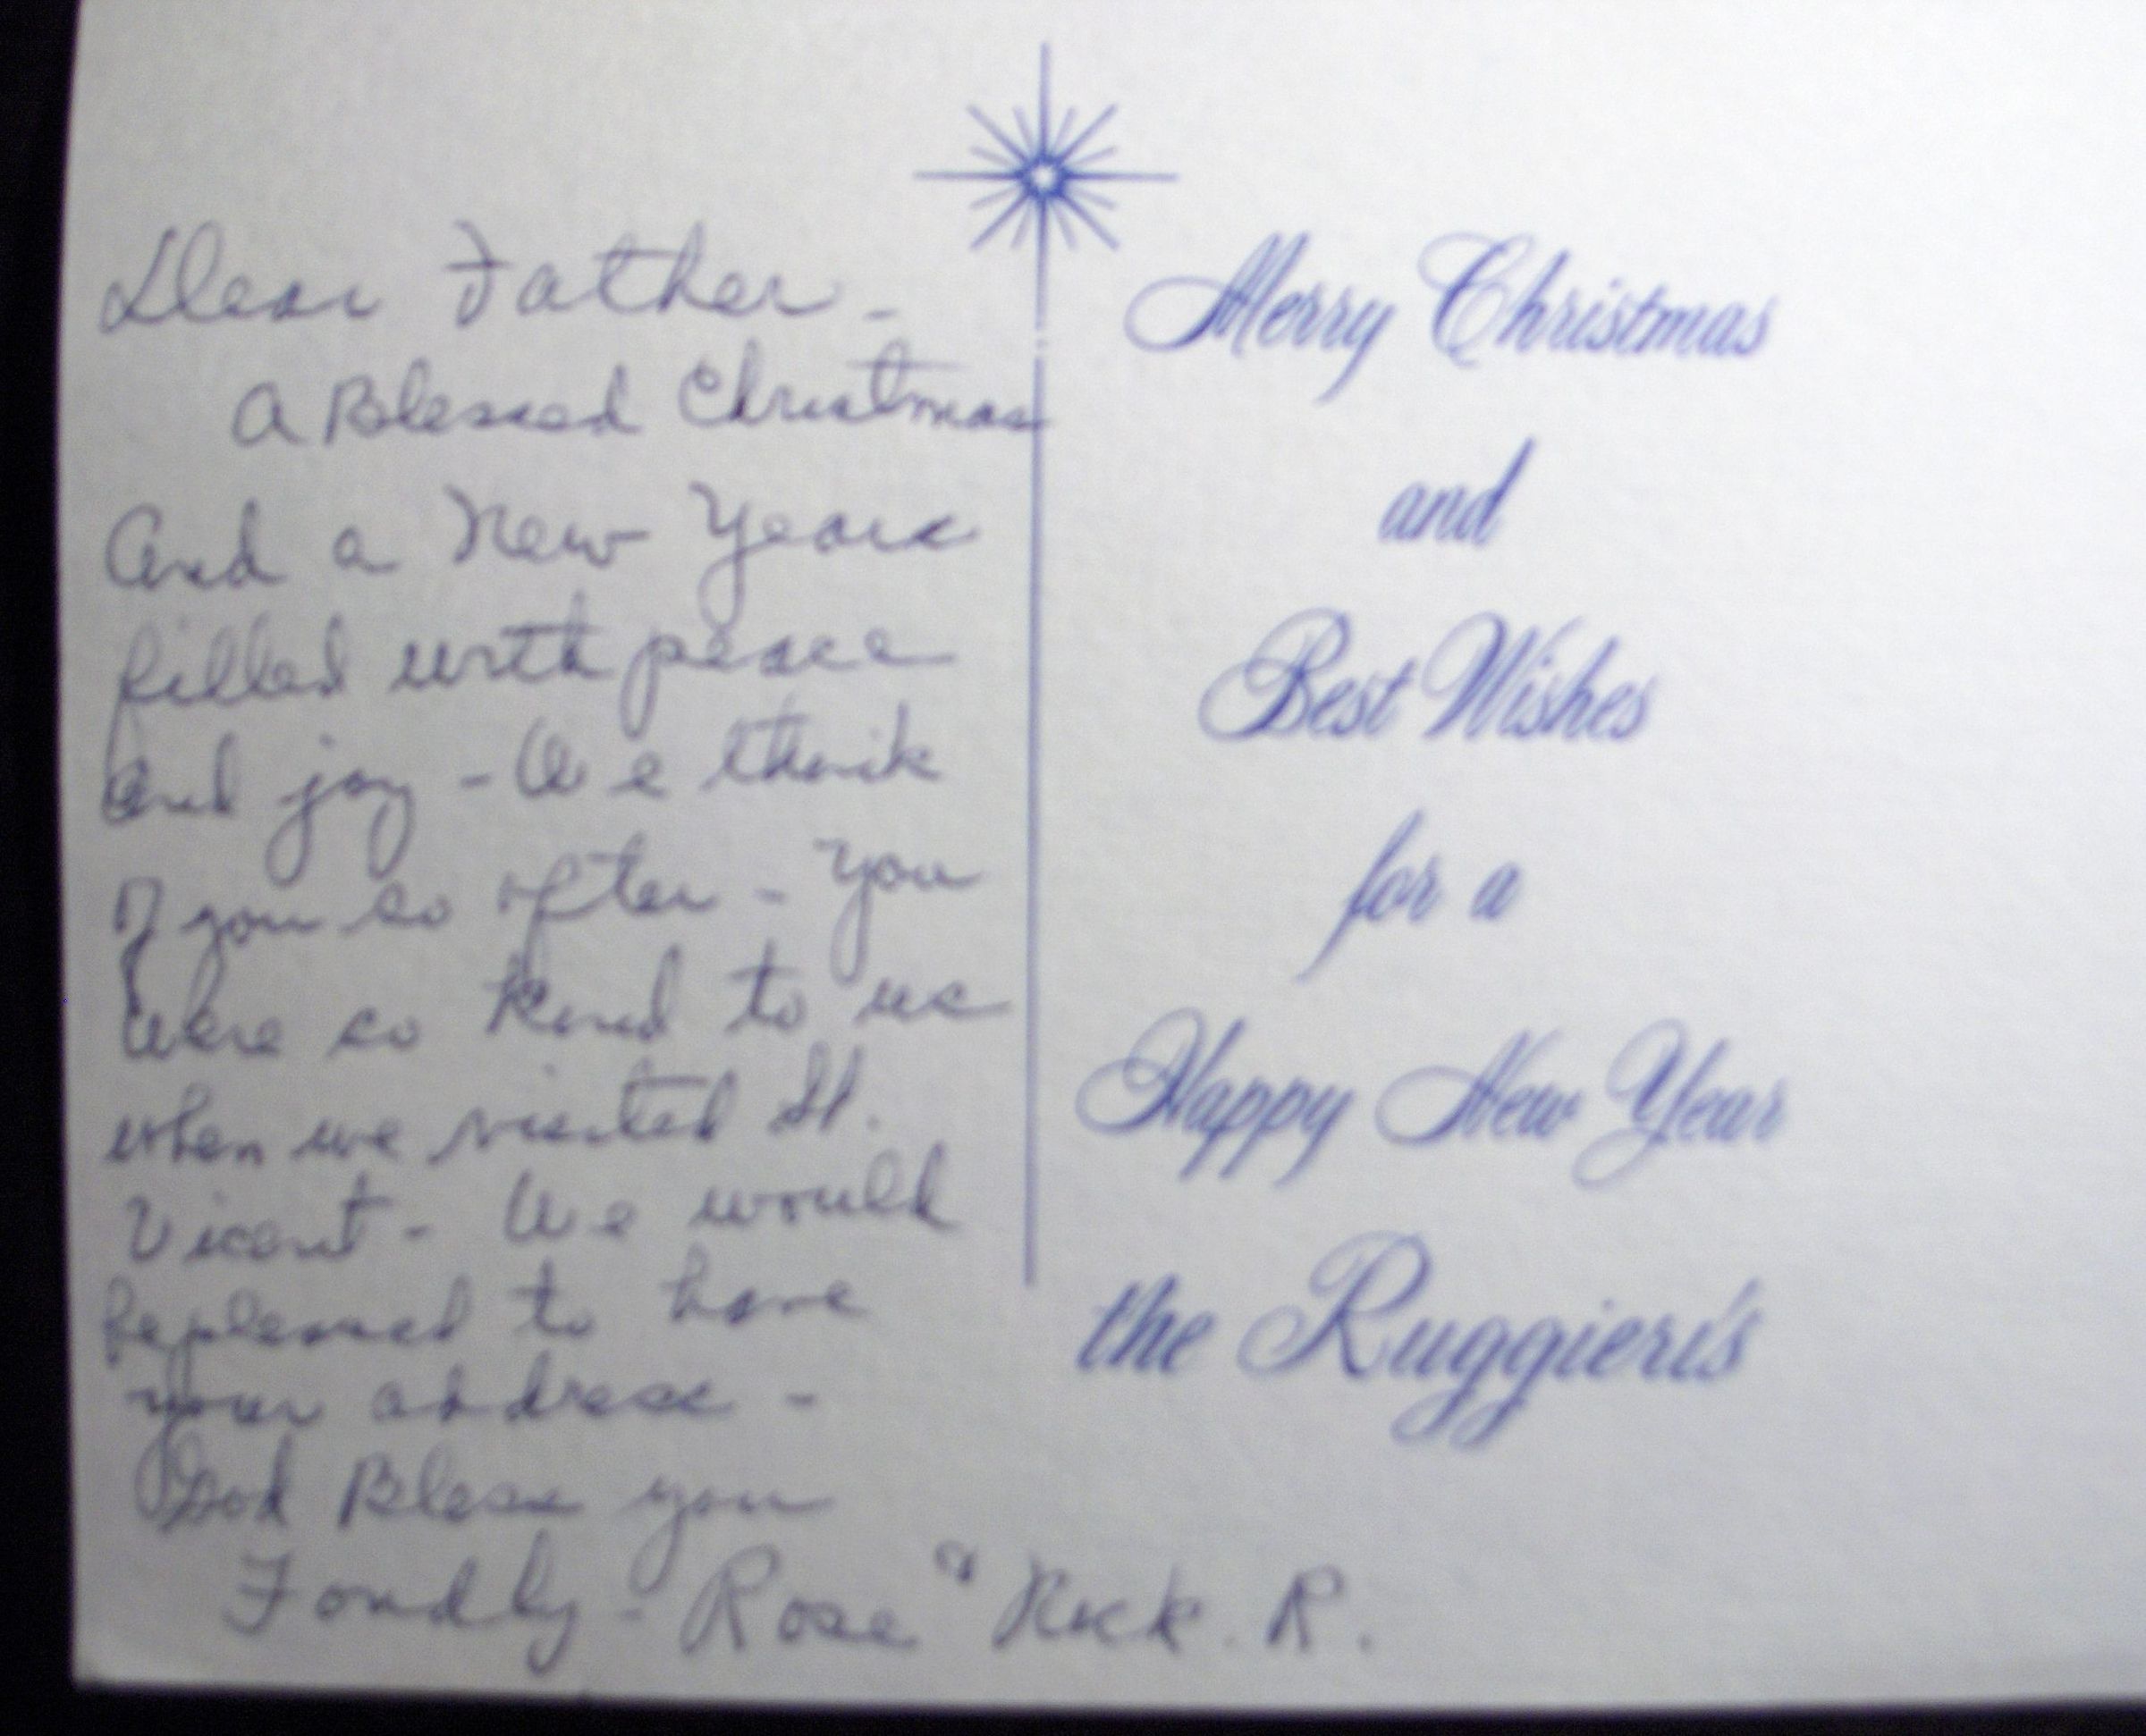 Dear Father -
A Blessed Christmas
And a New Years
filled with peace
and joy - We think
of you so often - You
Were so kind to us
when we visited St.
Vicent - We would
be pleased to have
your address -
God Bless you
Fondly - Rose & Nick. R.
Merry Christmas
and
Best Wishes
for a
Happy New Year
the Ruggieri's